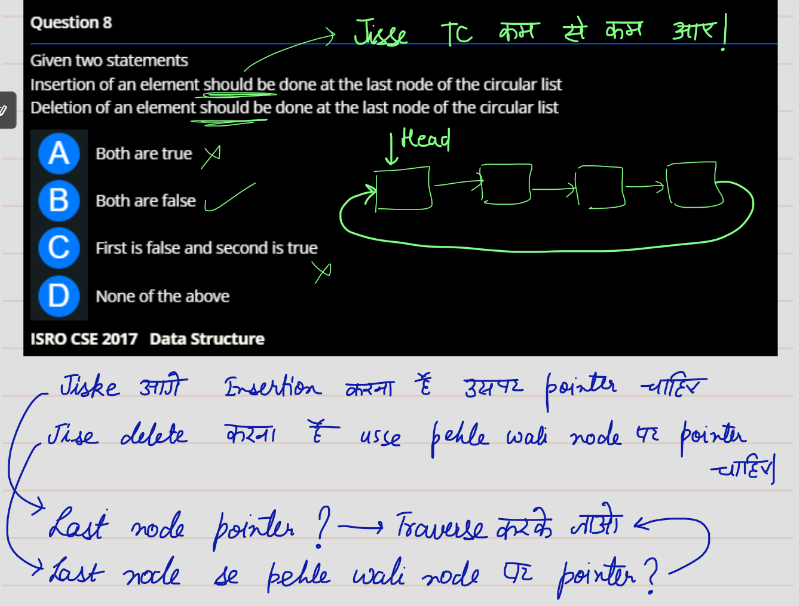 Question 8
Jisse TC कम से कम आए!
Given two statements
Insertion of an element should be done at the last node of the circular list
Deletion of an element should be done at the last node of the circular list
Head
A Both are true
B Both are false
C First is false and second is true
D None of the above
ISRO CSE 2017 Data Structure
Jiske आगे Insertion करना है उसपर pointer चाहिए
Jise delete करना है usse pehle wali node पर pointer
चाहिए|
Last node pointer? → Traverse करके जाओ
Last node se pehle wali node पर pointer?